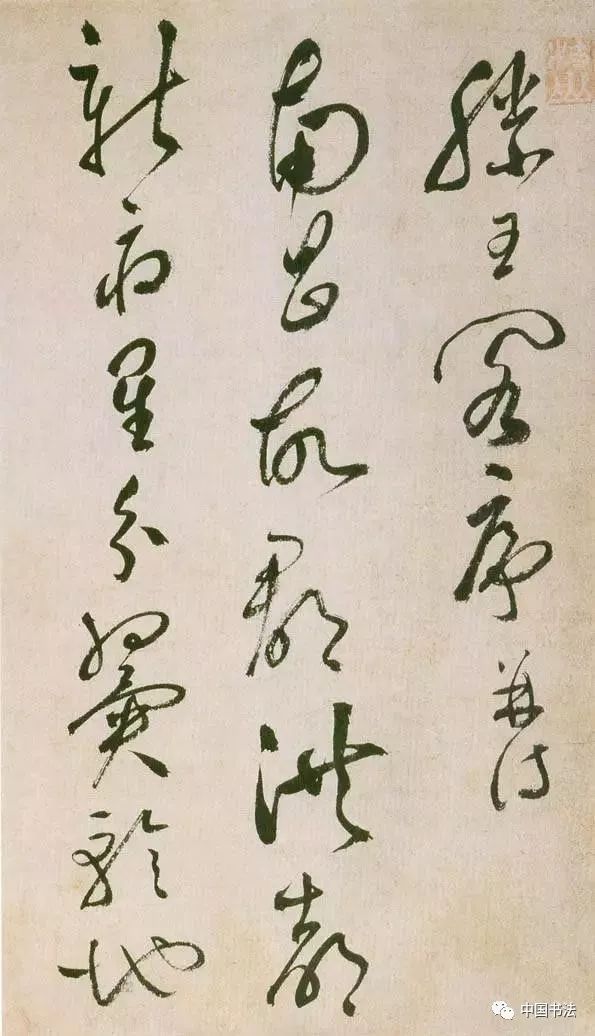 滕王阁序并诗
南昌故郡洪都
新府星分翼轸地
中国书法